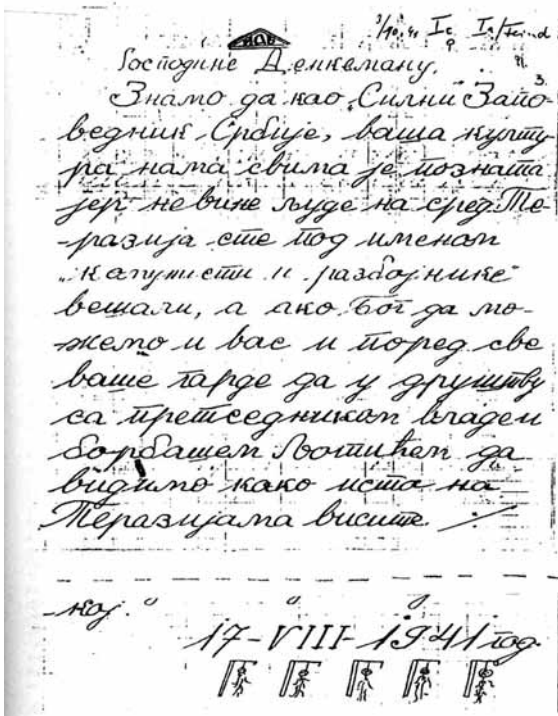 Господине Денкеману.
Знамо да као Силни Запо
ведник Србије, ваша култу-
ра нама свима је позната
јер невине људе на сред Те
-разија сте под именом
„комунисти и разбојнике“
вешали, а ако Бог да мо-
жемо и вас и поред све
ваше гарде да у друштву
са претседником владе и
борбашем Љотићем да
видимо како иста на
Теразијама висите
17-VIII-1941 год.